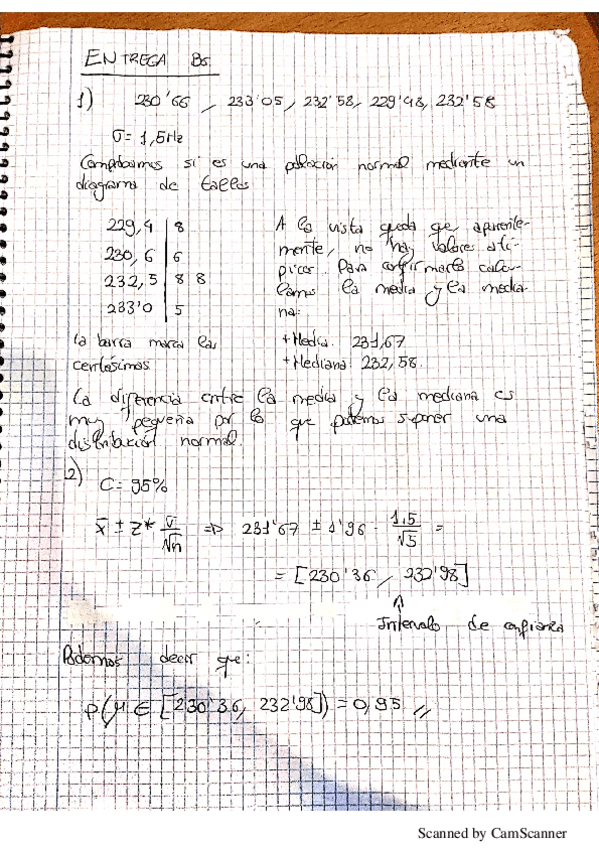 ENTREGA B5
1) 230'66, 233'05, 232'58, 229'48, 232'58
σ = 1,5 Hz
Comprobamos si es una población normal mediante un
diagrama de tallos
229,4 | 8
230,6 | 6
232,5 | 8 8
233'0 | 5
la barra marca las
centésimas
A la vista queda que, aparente-
mente, no hay valores atí-
picos. Para confirmarlo calcu-
lamos la media y la media-
na:
+ Media: 231,67
+ Mediana: 232,58.
La diferencia entre la media y la mediana es
muy pequeña por lo que podemos suponer una
distribución normal.
2) C = 95%
x̄ ± z* σ/√n => 231'67 ± 1'96 · 1,5/√5 =
= [230'36, 232'98]
Intervalo de confianza
Podemos decir que:
P(μ ∈ [230'36, 232'98]) = 0,95 //
Scanned by CamScanner